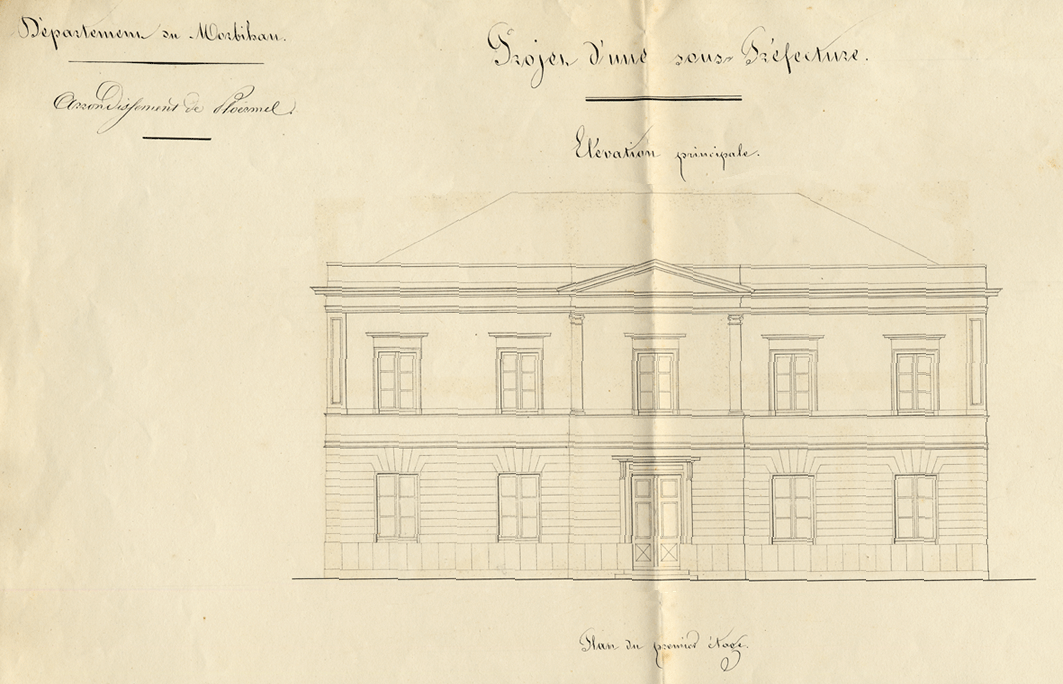 Département du Morbihan.
Arrondissement de Ploërmel.
Projet d'une sous-Préfecture.
Elévation principale.
Plan du premier étage.